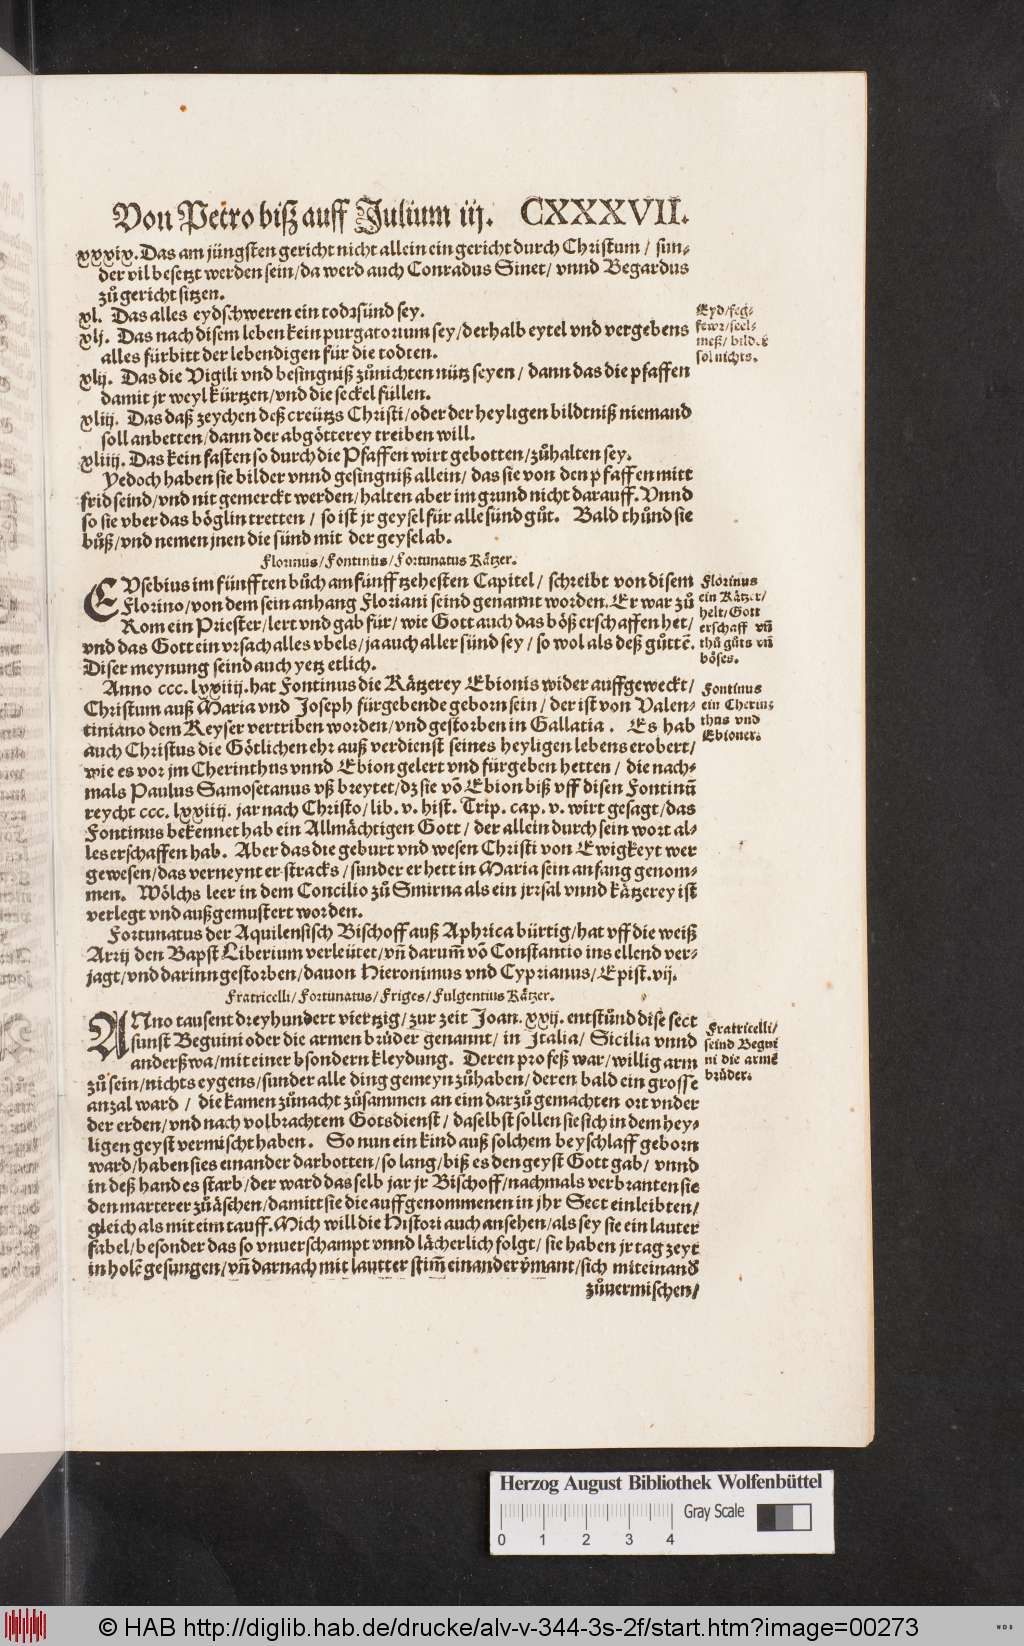 Von Petro biß auff Julium iij. CXXXVII.
xxxix. Das am jüngsten gericht nicht allein ein gericht durch Christum / sun-
der vil besetzt werden sein/da werd auch Conradus Sinet/ vnnd Begardus
zů gericht sitzen.
xl. Das alles eydschweren ein todsünd sey.
xlj. Das nach disem leben kein purgatorium sey/derhalb eytel vnd vergebens
alles fürbitt der lebendigen für die todten.
xlij. Das die Vigili vnd besingniß zůnichten nütz seyen / dann das die pfaffen
damit jr weyl kürtzen/vnd die seckel füllen.
xliij. Das daß zeychen deß creütts Christi/oder der heyligen bildtniß niemand
soll anbetten/dann der abgötterey treiben will.
xliiij. Das kein fasten so durch die Pfaffen wirt gebotten/zůhalten sey.
Yedoch haben sie bilder vnnd gesingniß allein/ das sie von den pfaffen mitt
frid seind/vnd nit gemerckt werden/halten aber im grund nicht darauff. Vnnd
so sie vber das böglin tretten / so ist jr geysel für alle sünd gůt. Bald thůnd sie
bůß/vnd nemen jnen die sünd mit der geysel ab.
Eyd/feg-
fewr/seel-
meß/ bilder
sol nichts.
Florinus/Fontinus/Fortunatus Kätzer.
EVsebius im fünfften bůch am fünfftzehesten Capitel/ schreibt von disem
Florino/von dem sein anhang Floriani seind genannt worden. Er war zů
Rom ein Priester/lert vnd gab für/ wie Gott auch das böß erschaffen het/
vnd das Gott ein vrsach alles vbels/ja auch aller sünd sey/ so wol als deß gůttẽ.
Diser meynung seind auch yetz etlich.
Florinus
ein Kätzer/
helt/Gott
erschaff vñ
thů gůts vñ
böses.
Anno ccc. lxxiiij. hat Fontinus die Kätzerey Ebionis wider auffgeweckt/
Christum auß Maria vnd Joseph fürgebende geborn sein/ der ist von Valen-
tiniano dem Keyser vertriben worden/vnd gestorben in Gallatia. Es hab
auch Christus die Götlichen ehr auß verdienst seines heyligen lebens erobert/
wie es vor jm Cherinthus vnnd Ebion gelert vnd fürgeben hetten/ die nach-
mals Paulus Samosetanus vß breytet/dz sie võ Ebion biß vff disen Fontinũ
reycht ccc. lxxiiij. jar nach Christo/lib. v. hist. Trip. cap. v. wirt gesagt/das
Fontinus bekennet hab ein Allmächtigen Gott/ der allein durch sein wort al-
les erschaffen hab. Aber das die geburt vnd wesen Christi von Ewigkeyt wer
gewesen/das verneynt er stracks/sunder er hett in Maria sein anfang genom-
men. Wölchs leer in dem Concilio zů Smirna als ein jrrsal vnnd kätzerey ist
verlegt vnd außgemustert worden.
Fontinus
ein Cherin-
thus vnd
Ebioner.
Fortunatus der Aquilensisch Bischoff auß Aphrica bürtig/hat vff die weiß
Arrij den Bapst Liberium verleütet/vñ darum̃ võ Constantio ins ellend ver-
jagt/vnd darinn gestorben/dauon Hieronimus vnd Cyprianus/Epist. vij.
Fratricelli/Fortunatus/Friges/Fulgentius Kätzer.
ANno tausent dreyhundert viertzig/zur zeit Joan. xxij. entstůnd dise sect
sunst Beguini oder die armen brüder genannt/ in Italia/ Sicilia vnnd
anderßwa/mit einer bsondern kleydung. Deren profeß war/willig arm
zů sein/nichts eygens/sunder alle ding gemeyn zůhaben/deren bald ein grosse
anzal ward / die kamen zůnacht zůsammen an eim darzů gemachten ort vnder
der erden/vnd nach volbrachtem Gotsdienst/ daselbst sollen sie sich in dem hey-
ligen geyst vermischt haben. So nun ein kind auß solchem beyschlaff geborn
ward/haben sies einander darbotten/so lang/biß es den geyst Gott gab/ vnnd
in deß hand es starb/der ward dasselb jar jr Bischoff/nachmals verbranten sie
den marterer zů äschen/damitt sie die auffgenommenen in jhr Sect einleibten/
gleich als mit eim tauff. Mich will die Histori auch ansehen/als sey sie ein lauter
fabel/besonder das so vnuerschampt vnnd lächerlich folgt/ sie haben jr tag zeyt
in holẽ gesungen/vñ darnach mit lautter stim̃ einander v̈mant/sich miteinand
zůuermischen/
Fratricelli/
seind Begui
ni die armẽ
brüder.
Herzog August Bibliothek Wolfenbüttel
0 1 2 3 4 Gray Scale
© HAB http://diglib.hab.de/drucke/alv-v-344-3s-2f/start.htm?image=00273